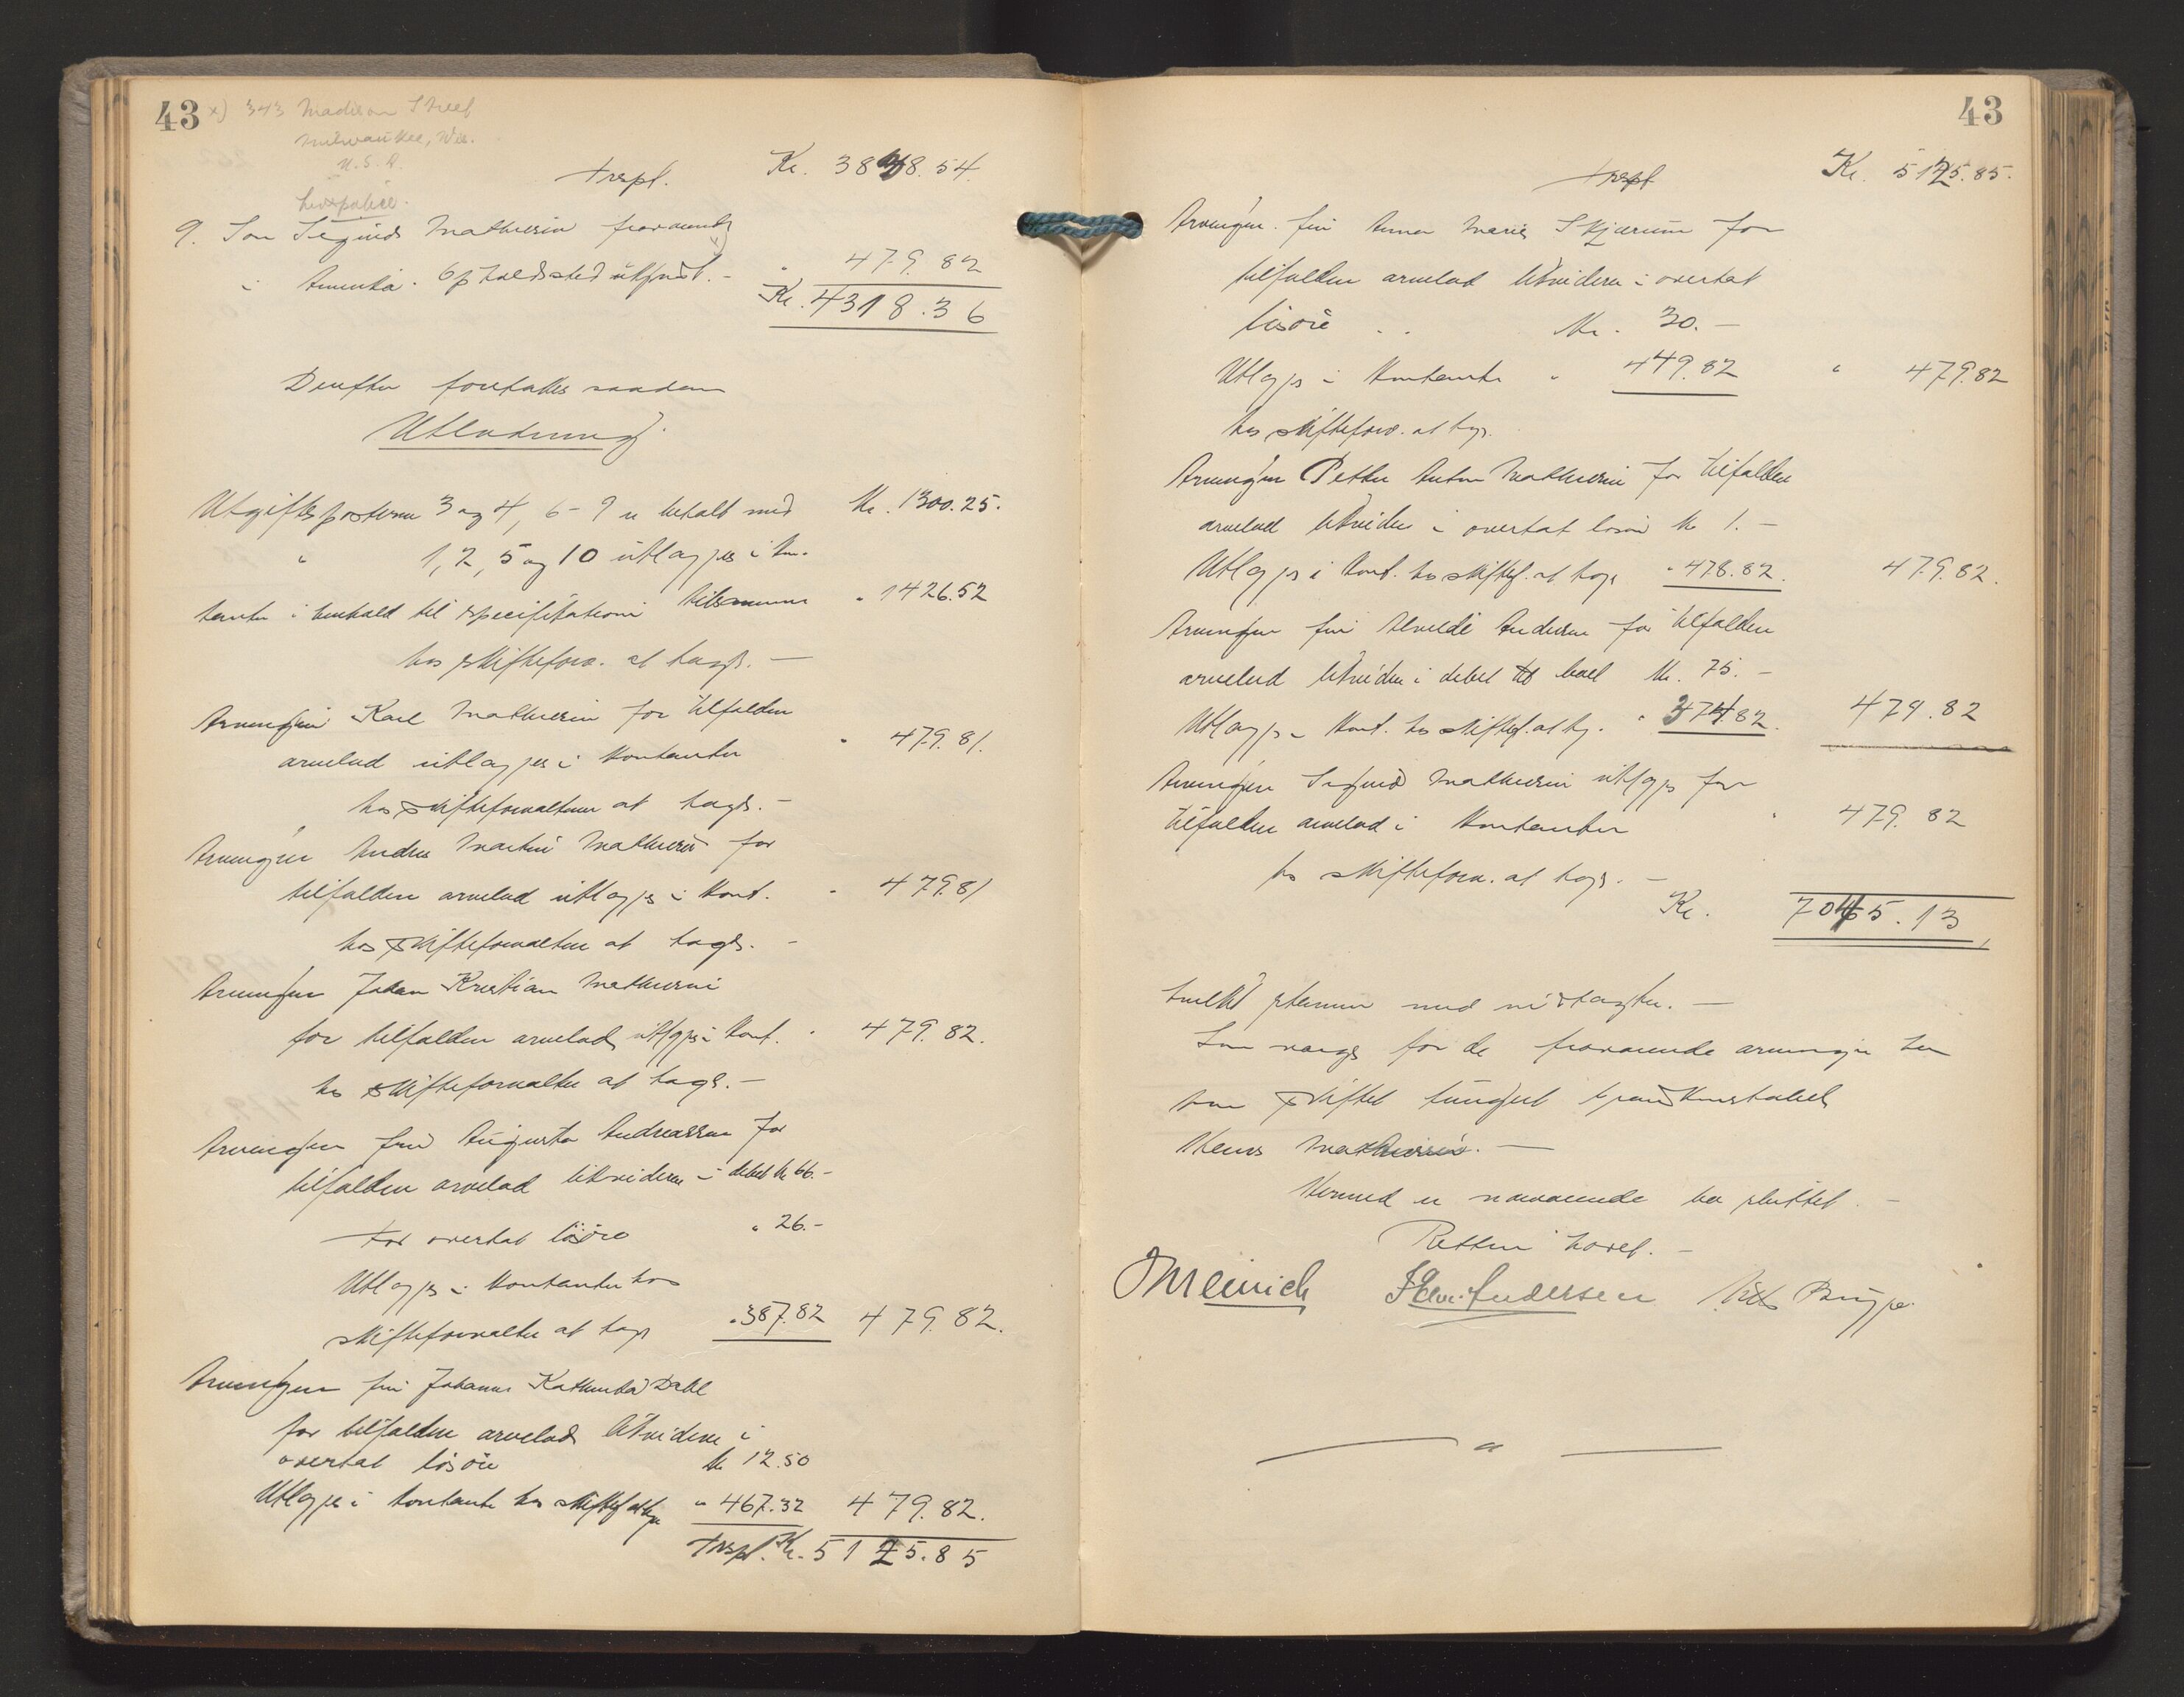 43 x) 343 Madison Street
Milwaukee, Wis.
U.S.A.
Trspt. Kr. 3838.54
9. Søn Sigurd Mathiesen fraværende x)
i Amerika. Opholdssted ukjendt. - " 479.82
Kr. 4318.36
Derefter foretokes saadan
Utlodning.
Utgiftsposterne 3 og 4, 6-9 er betalt med Kr. 1300.25.
" 1, 2, 5 og 10 utlægges i kon-
tanter i henhold til specifikationen tilsammen " 1426.52
hos skifteforv. at tages. -
Arvingen Karl Mathiesen for tilfalden
arvelod utlægges i kontanter " 479.81.
hos skifteforvalteren at tages. -
Arvingen Andreas Martin Mathiesen for
tilfalden arvelod utlægges i kont. " 479.81
hos skifteforvalteren at tages. -
Arvingen Johan Kristian Mathiesen
for tilfalden arvelod utlægges i kont. " 479.82.
hos skifteforvalter at tages. -
Arvingen fru Augusta Andreassen for
tilfalden arvelod likvideres i debet kr 66.-
For overtat løsøre " 26.-
Utlægges i kontanter hos
skifteforvalter at tages " 387.82 479.82.
Arvingen fru Johanne Dahl
for tilfalden arvelod likvideres i
overtat løsøre kr 12.50
Utlægges i kontanter hos skiftef. at tages " 467.32 479.82.
Trspt. Kr. 5125.85
43
Trspt Kr. 5125.85.
Arvingen fru Anna Marie Skjærum for
tilfalden arvelod likvideres i overtat
løsøre " Kr. 30.-
Utlægges i kontanter " 449.82 " 479.82
hos skifteforv. at tages.
Arvingen Petter Anton Mathiesen for tilfalden
arvelod likvideres i overtat løsøre kr 1.-
Utlægges i kont. hos skiftef. at tages " 478.82. 479.82.
Arvingen fru Andersen for tilfalden
arvelod likvideres i debet til boet kr. 75.-
Utlægges i kont. hos skiftef. at tages. " 374.82. 479.82
Arvingen Sigurd Mathiesen utlægges for
tilfalden arvelod i kontanter " 479.82
hos skifteforv. at tages. -
Kr. 7045.13
hvilket stemmer med indtægten. -
Som værge for de fraværende arvinger har
paa skiftet fungeret brandkonstabel
Mathiesen. -
Hermed er nærværende bo sluttet. -
Retten hævet. -
Meinich Andersen